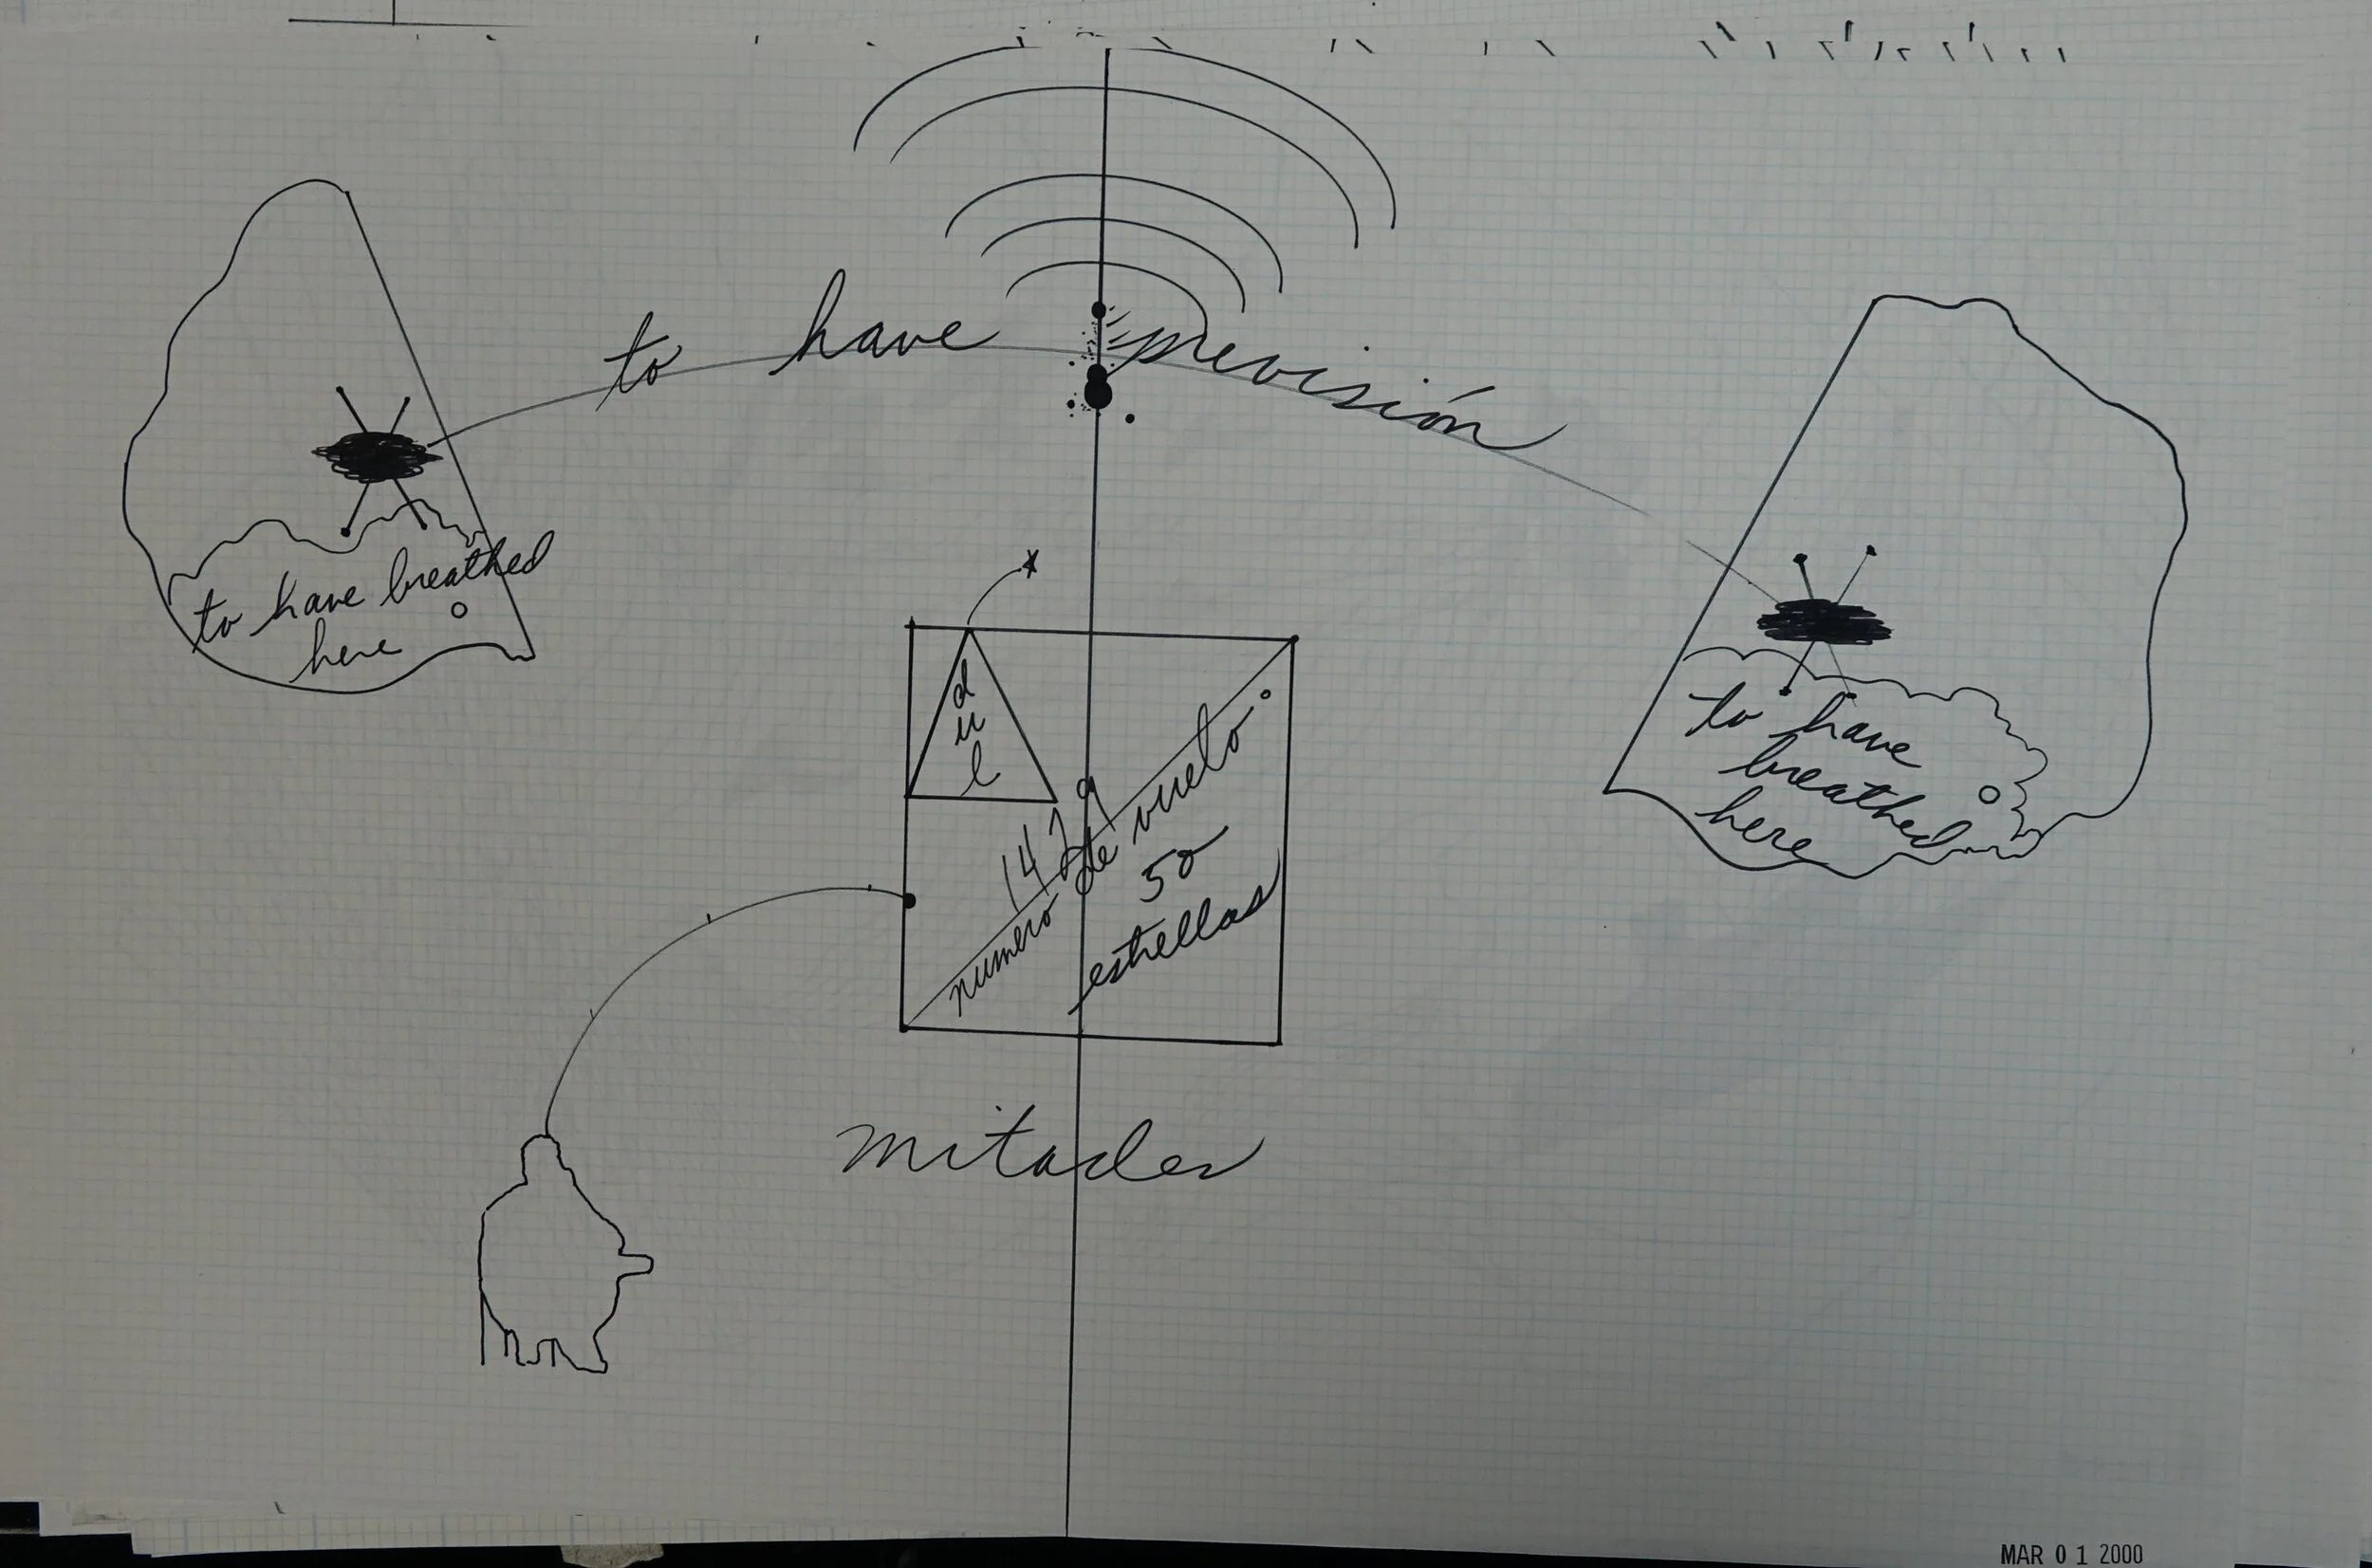 to have previsión
to have breathed
here
to have
breathed
here
d
u
l
1429
numero de vuelo
50
estrellas
mitades
MAR 01 2000